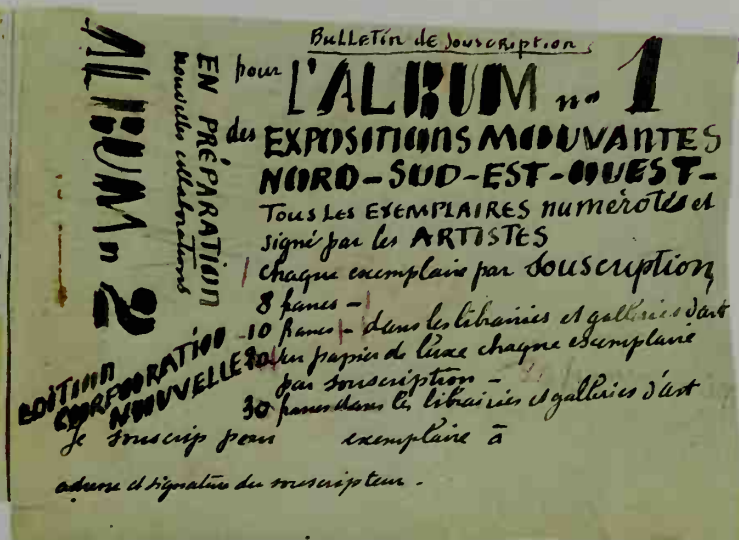 Bulletin de souscription
pour L'ALBUM no 1
des EXPOSITIONS MOUVANTES
NORD-SUD-EST-OUEST-
TOUS LES EXEMPLAIRES numérotés et
signé par les ARTISTES
chaque exemplaire par souscription
8 francs -
10 francs - dans les librairies et galleries d'art
20 en papier de luxe chaque exemplaire
par souscription -
30 francs dans les librairies et galleries d'art
je souscrip pour exemplaire à
adresse et signature du souscripteur -
ALBUM n 2
EN PRÉPARATION
nouvelles collaborations
EDITION
CORPORATION
NOUVELLE